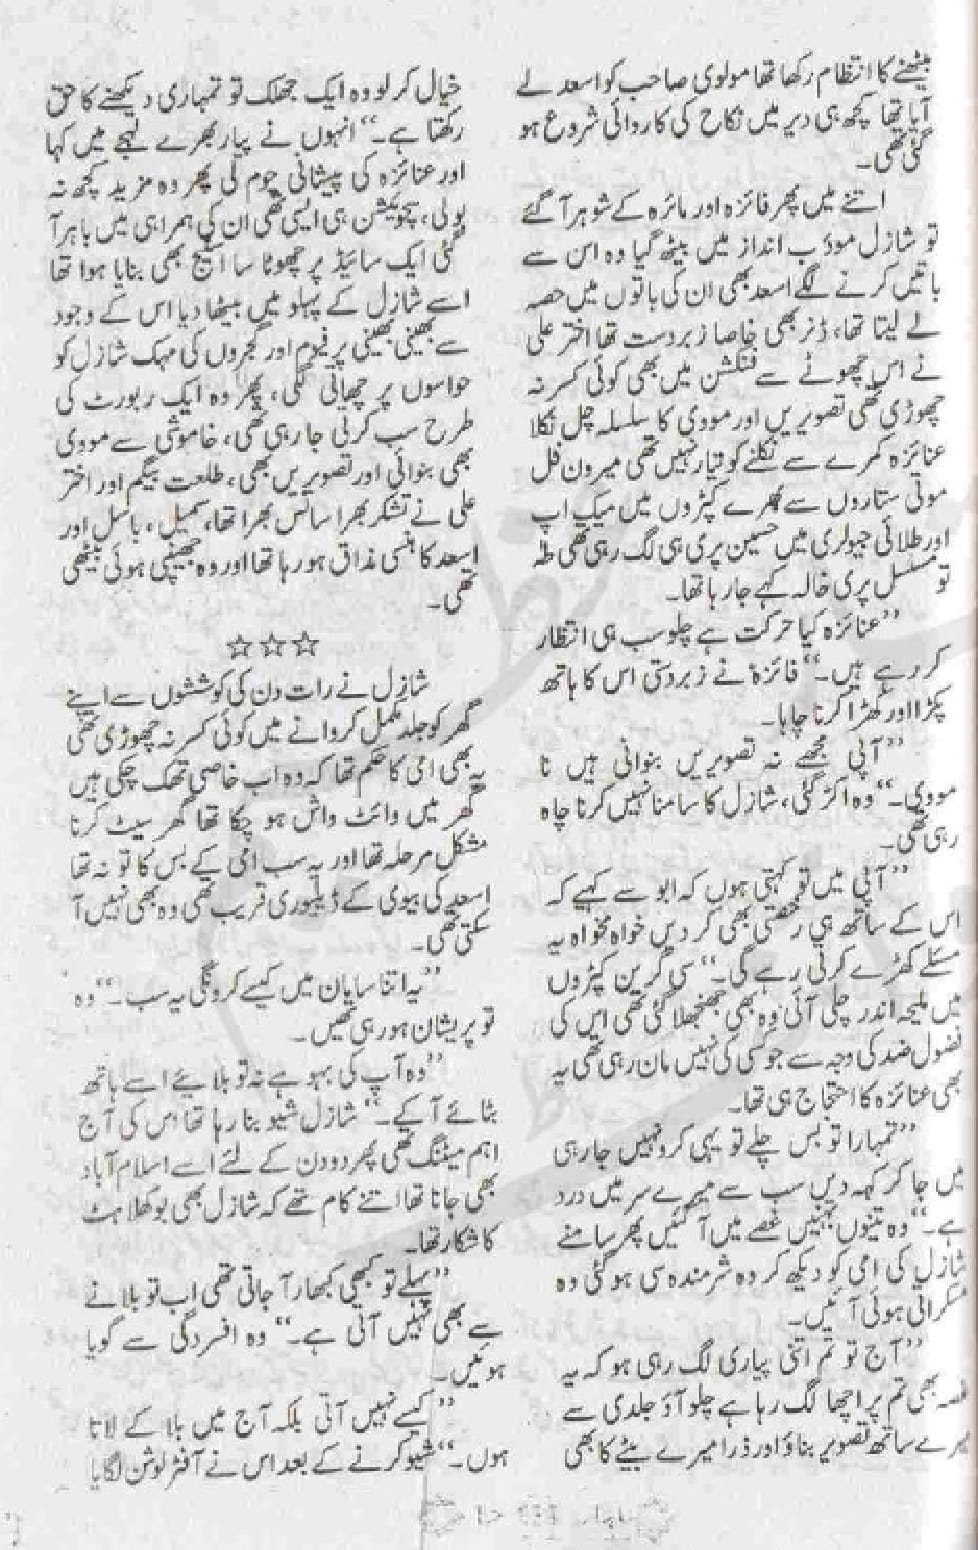 بیٹھنے کا انتظام رکھا تھا مولوی صاحب کو اسعد لے
آیا تھا کچھ ہی دیر میں نکاح کی کاروائی شروع ہو
گئی تھی۔
اتنے میں پھر فائزہ اور مائرہ کے شوہر آ گئے
تو شازل مودب انداز میں بیٹھ گیا وہ اس سے
باتیں کرنے لگے اسعد بھی ان کی باتوں میں حصہ
لے لیتا تھا، ڈنر بھی خاصا زبردست تھا اختر علی
نے اس چھوٹے سے فنکشن میں بھی کوئی کسر نہ
چھوڑی تھی تصویریں اور مووی کا سلسلہ چل نکلا
عنائزہ کمرے سے نکلنے کو تیار نہیں تھی میرون فل
موتی ستاروں سے بھرے کپڑوں میں میک اپ
اور طلائی جیولری میں حسین پری ہی لگ رہی تھی طہ
تو مسلسل پری خالہ کہے جا رہا تھا۔
”عنائزہ کیا حرکت ہے چلو سب ہی انتظار
کر رہے ہیں۔“ فائزہ نے زبردتی اس کا ہاتھ
پکڑا اور کھڑا کرنا چاہا۔
”آپی مجھے نہ تصویریں بنوانی ہیں نا
مووی۔“ وہ اکڑ گئی، شازل کا سامنا نہیں کرنا چاہ
رہی تھی۔
”آپی میں تو کہتی ہوں کہ ابو سے کہیے کہ
اس کے ساتھ ہی رخصتی بھی کر دیں خواہ مخواہ یہ
مسئلے کھڑے کرتی رہے گی۔“ سی گرین کپڑوں
میں ملیحہ اندر چلی آئی وہ بھی جھنجھلا گئی تھی اس کی
فضول ضد کی وجہ سے جو کسی کی نہیں مان رہی تھی یہ
بھی عنائزہ کا احتجاج ہی تھا۔
”تمہارا تو بس چلے تو یہی کرو نہیں جا رہی
میں جا کر کہہ دیں سب سے میرے سر میں درد
ہے۔“ وہ تینوں بہنیں غصے میں آ گئیں پھر سامنے
شازل کی امی کو دیکھ کر وہ شرمندہ سی ہو گئی وہ
مسکراتی ہوئی آئیں۔
”آج تو تم اتنی پیاری لگ رہی ہو کہ یہ
غصہ بھی تم پر اچھا لگ رہا ہے چلو آؤ جلدی سے
میرے ساتھ تصویر بناؤ اور ذرا میرے بیٹے کا بھی
خیال کر لو وہ ایک جھلک تو تمہاری دیکھنے کا حق
رکھتا ہے۔“ انہوں نے پیار بھرے لہجے میں کہا
اور عنائزہ کی پیشانی چوم لی پھر وہ مزید کچھ نہ
بولی، سچویشن ہی ایسی تھی ان کی ہمراہی میں باہر آ
گئی ایک سائیڈ پر چھوٹا سا اسٹیج بھی بنایا ہوا تھا
اسے شازل کے پہلو میں بیٹھا دیا اس کے وجود
سے بھینی بھینی پرفیوم اور گجروں کی مہک شازل کو
حواسوں پر چھائی لگی، پھر وہ ایک ربورٹ کی
طرح سب کرتی جا رہی تھی، خاموشی سے مووی
بھی بنوائی اور تصویریں بھی، طلعت بیگم اور اختر
علی نے تشکر بھرا سانس بھرا تھا، سمیل، باسل اور
اسعد کا ہنسی مذاق ہو رہا تھا اور وہ جھینپی ہوئی بیٹھی
تھی۔
☆☆☆
شازل نے رات دن کی کوششوں سے اپنے
گھر کو جلد مکمل کروانے میں کوئی کسر نہ چھوڑی تھی
یہ بھی امی کا حکم تھا کہ وہ اب خاصی تھک چکی ہیں
گھر میں وائٹ واش ہو چکا تھا گھر سیٹ کرنا
مشکل مرحلہ تھا اور یہ سب امی کے بس کا تو نہ تھا
اسعد کی بیوی کے ڈلیوری قریب تھی وہ بھی نہیں آ
سکتی تھی۔
”یہ اتنا سامان میں کیسے کرونگی یہ سب۔“ وہ
تو پریشان ہو رہی تھیں۔
”وہ آپ کی بہو ہے نہ تو بلایئے اسے ہاتھ
بٹائے آ کے۔“ شازل شیو بنا رہا تھا اس کی آج
اہم میٹنگ تھی پھر دو دن کے لئے اسے اسلام آباد
بھی جانا تھا اتنے کام تھے کہ شازل بھی بوکھلاہٹ
کا شکار تھا۔
”پہلے تو کبھی کبھار آ جاتی تھی اب تو بلانے
سے بھی نہیں آتی ہے۔“ وہ افسردگی سے گویا
ہوئیں۔
”کیسے نہیں آتی بلکہ آج میں بلا کے لاتا
ہوں۔“ شیو کرنے کے بعد اس نے آفٹر لوشن لگایا